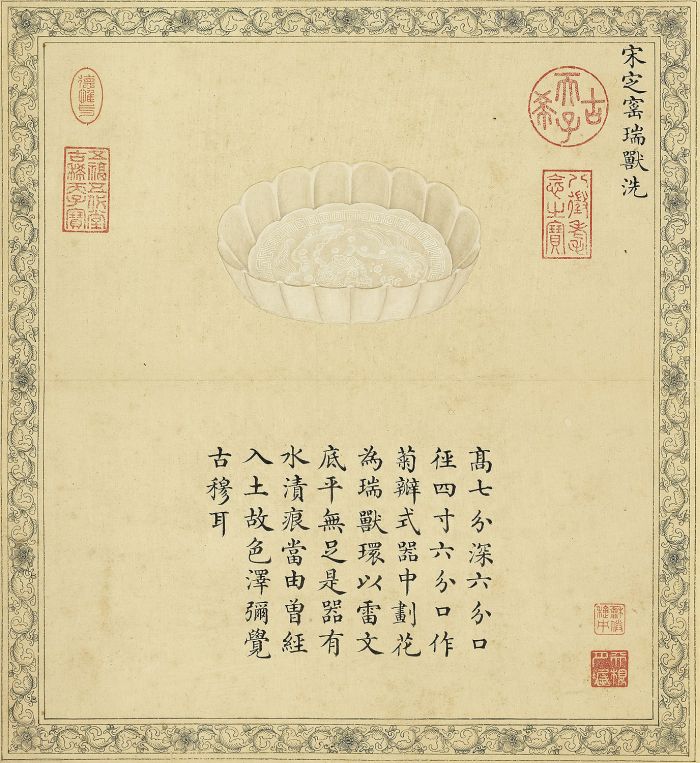 宋㝎窰瑞獸洗
古希天子
八徵耄
念之寶
髙七分深六分口
徑四寸六分口作
菊瓣式器中劃花
為瑞獸環以雷文
底平無足是器有
水漬痕當由曾經
入土故色澤彌覺
古穆耳
五福五代堂
古稀天子寶